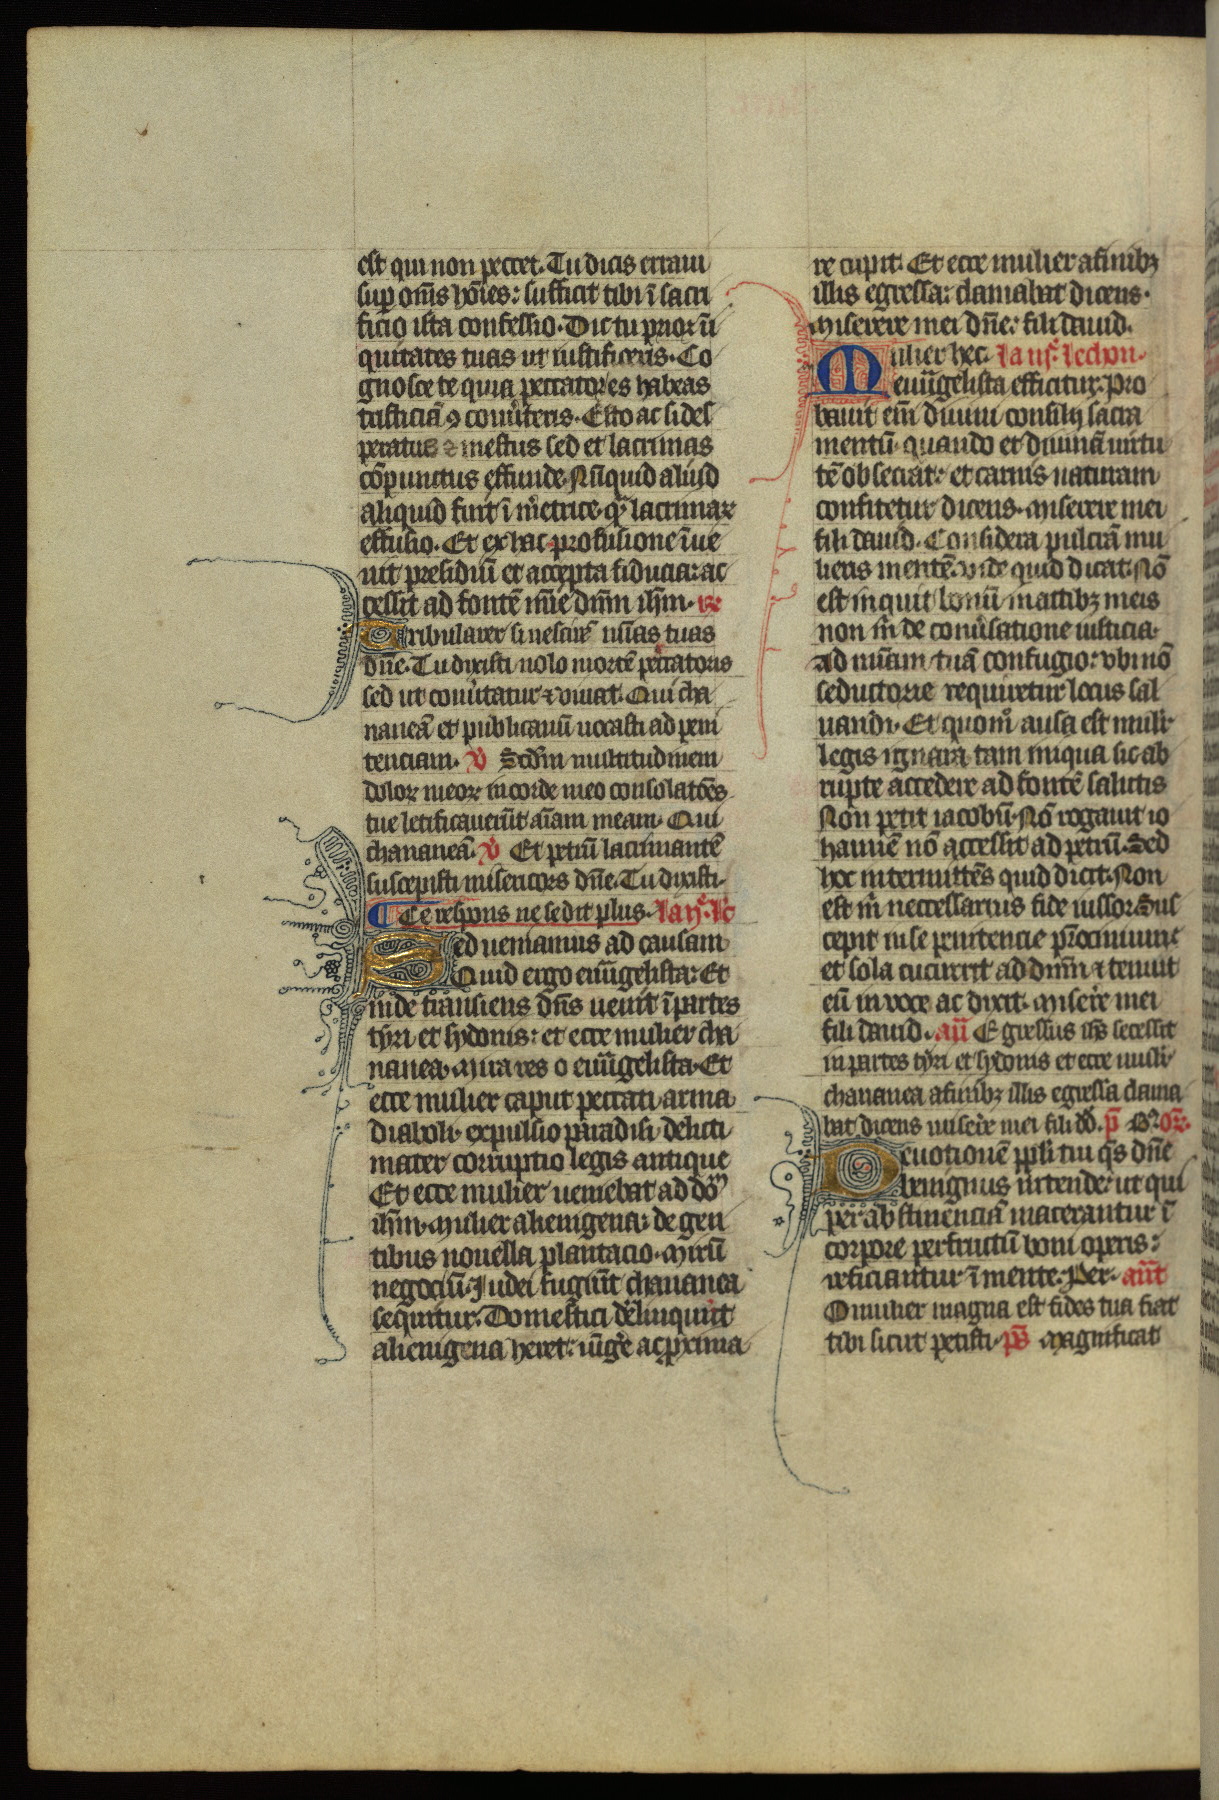 est qui non peccet. Tu dicis erraui
suꝑ om̄s hōies: sufficit tibi ī sacri
ficio ista confessio. Dic tu prior ī
quitates tuas ut iustificeris. Co
gnosce te quia peccatores habeas
tristiciā ⁊ conūteris. Esto ac si des
peratus ⁊ mestus sed et lacrimas
cōpunctus effunde. Nūquid aliud
aliquid fuit ī m̄etrice q̄ lacrimaꝝ
effusio. Et ex hac profusione īue
nit presidiū et accepta fiducia: ac
cessit ad fontē uiue dn̄m ih̄m. ꝶ
Tribularer si nescirē mīas tuas
dn̄e. Tu dixisti nolo mortē peccatoris
sed ut conūtatur ⁊ viuat. Qui cha
naneā et publicanū uocasti ad peni
tenciam. ℣ Scd̄m multitudinem
doloꝝ meoꝝ in corde meo consolatōes
tue letificauerūt aīam meam. Qui
chananeā. ℣ Et petrū lacrimantē
suscepisti misericors dn̄e. Tu dixisti.
Ce respons ne se dit plus. la ij͛. lc̄
Sed ueniamus ad causam
Quid ergo euūgelista: Et
inde transiens dn̄s uenit ī partes
tyri et sydonis: et ecce mulier cha
nanea. Mira res o euūgelista. Et
ecce mulier caput peccati. arma
diaboli. expulsio paradisi. delicti
mater corruptio legis antique
Et ecce mulier ueniebat ad dōm
ih̄m. Mulier alienigena: de gen
tibus nouella plantacio. Mirū
negociū. Iudei fugiūt chananea
sequitur. Domestici delinquūt
alienigena heret: iūge ac ꝓxima
re cupit. Et ecce mulier a finibꝫ
illis egressa: clamabat dicens.
Miserere mei dn̄e: fili dauid.
Mulier hec. La iij͛. lechon.
euūgelista efficitur. Pro
bauit em̄ diuini consilij sacra
mentū. quando et diuinā uirtu
tē obsecrat: et carnis naturam
confitetur dicens. Miserere mei
fili dauid. Considera pulcrā mu
lieris mentē. vide quid dicat. Nō
est inquit bonū in actibꝫ meis
non m̄ de conūsatione iusticia:
ad mīam tuā confugio: vbi nō
seductorie requiretur locus sal
uandi. Et quom̄ ausa est muli͛
legis ignara tam iniqua sic ab
rupte accedere ad fontē salutis
Non petit iacobū. Nō rogauit io
hannē nō accessit ad petrū. Sed
hec intermittēs quid dicit. Non
est m̄ neccessarius fide iussor. Sus
cepit in se penitencie p̄rocinium
et sola cucurrit ad dn̄m ⁊ tenuit
eū in voce ac dixit. Misere mei
fili dauid. añ Egressus ihs̄ secessit
in partes tyri et sydonis et ecce muli͛
chananea a finibꝫ illis egressa clama
bat dicens misere mei fili dd̄. p̄ B. oꝛ̄.
Deuotionē ppl̄i tui qs̄ dn̄e
benignus intende: ut qui
per abstinenciā macerantur ī
corpore per fructū boni operis:
reficiantur ī mente. Per. añt
O mulier magna est fides tua fiat
tibi sicut petisti. ps̄ Magnificat